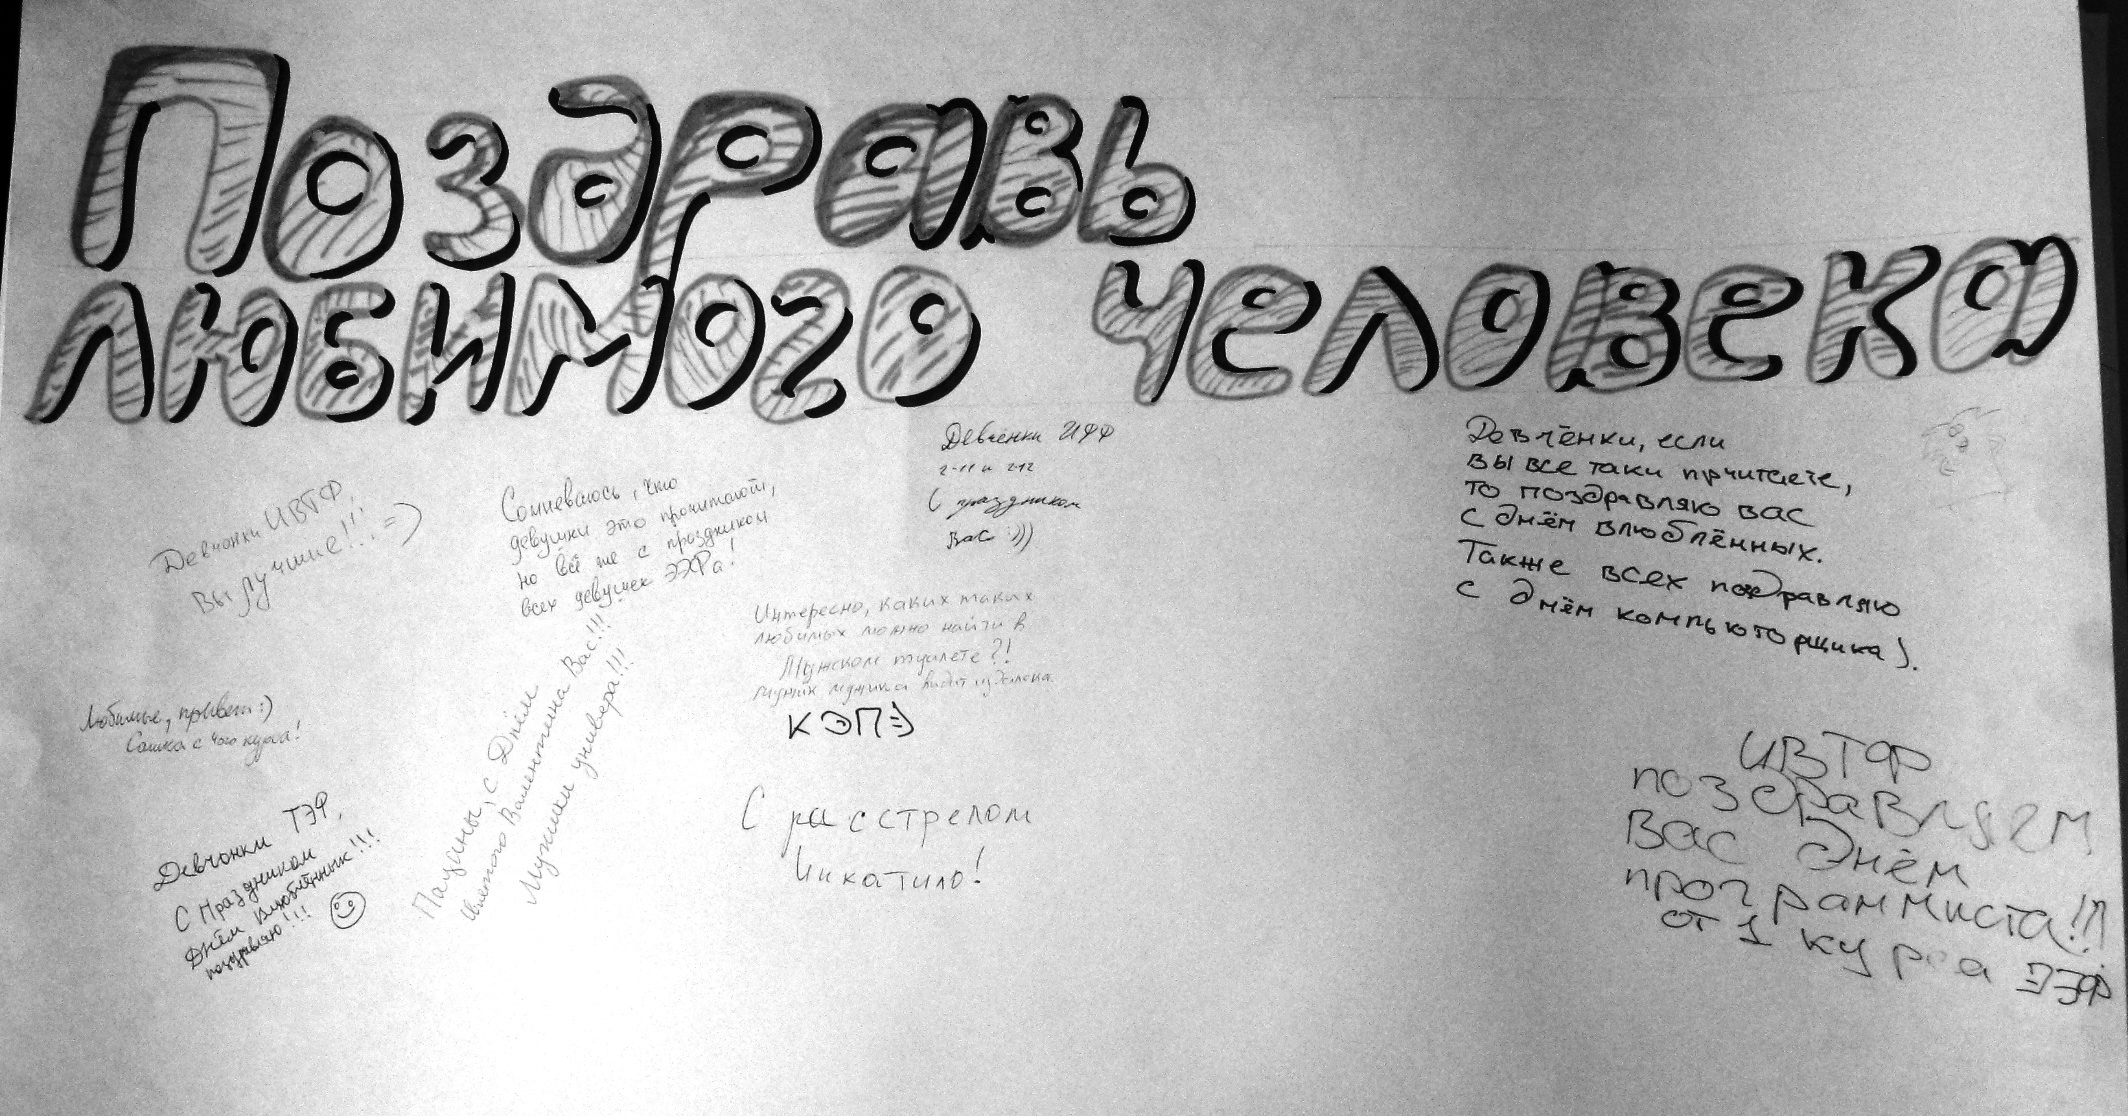 Поздравь
любимого человека
Девчонки ИВТФ,
Вы лучшие!!! =)
Сомневаюсь, что
девушки это прочитают,
но всё же с праздником
всех девушек ЭЭФа!
Девчёнки ИФФ
2-11 и 2-12
С праздником
Вас :)))
Девчёнки, если
вы все таки прчитаете,
то поздравляю вас
с днём влюблённых.
Также всех поздравляю
с днём компьюторщика).
Интересно, каких таких
любимых можно найти в
Мужском туалете?!
мужик мужика видит издалека
КЭП=)
Любимые, привет:)
Сашка с 4ого курса!
Пацаны, с Днём
Святого Валентина Вас!!!
Мужики универа!!!
Девчонки ТЭФ,
С Праздником
Днём Влюблённых!!!
поздравляю!!!
С расстрелом
Чикатило!
ИВТФ
поздравляем
Вас Днём
программиста!!!
от 1 курса ЭЭФ